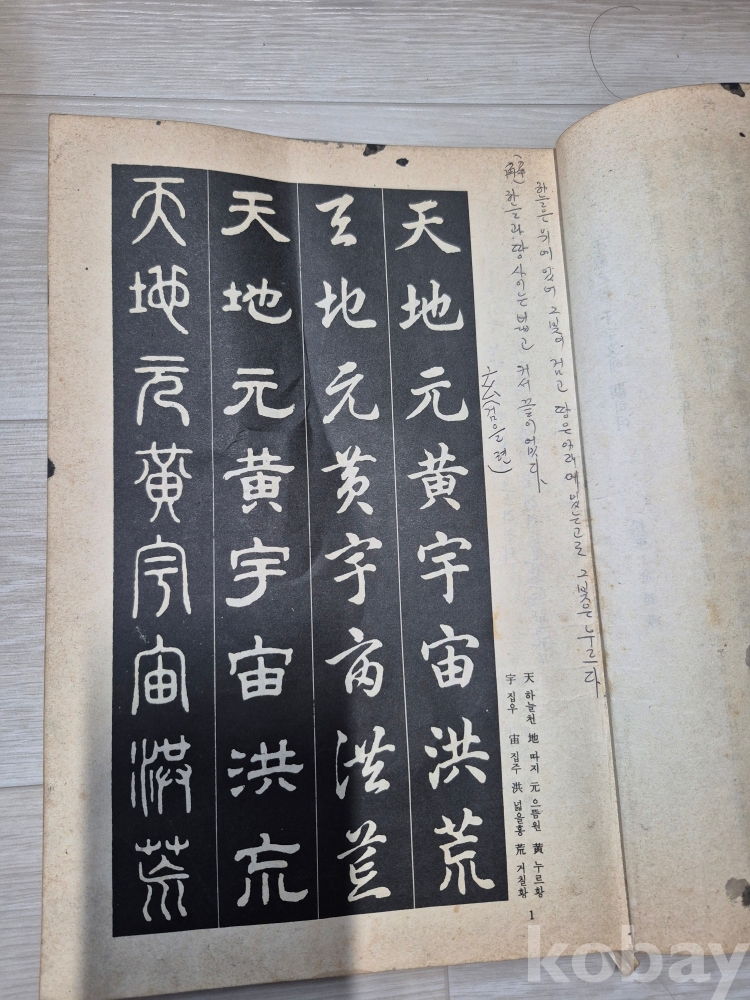 하늘은 위에 있어 그 빛이 검고 땅은 아래에 있는고로 그 빛은 누르다
(解) 하늘과 땅 사이는 넓고 커서 끝이 없다
玄(검을 현)
天 하늘천 地 따지 元 으뜸원 黃 누르황
宇 집우 宙 집주 洪 넓을홍 荒 거칠황
1
天地元黃宇宙洪荒
天地元黃宇宙洪荒
天地元黃宇宙洪荒
天地元黃宇宙洪荒
kobay